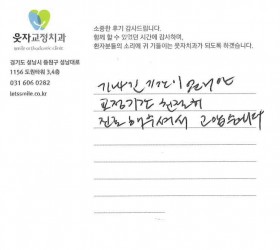 웃자교정치과
smile orthodontic clinic
경기도 성남시 중원구 성남대로
1156 도원타워 3,4층
031 606 0282
letssmile.co.kr
소중한 후기 감사드립니다.
함께 할 수 있었던 시간에 감사하며,
환자분들의 소리에 귀 기울이는 웃자치과가 되도록 하겠습니다.
기나긴 기간이 였네만
교정기간 친절히
진료해주셔서 고맙습니다